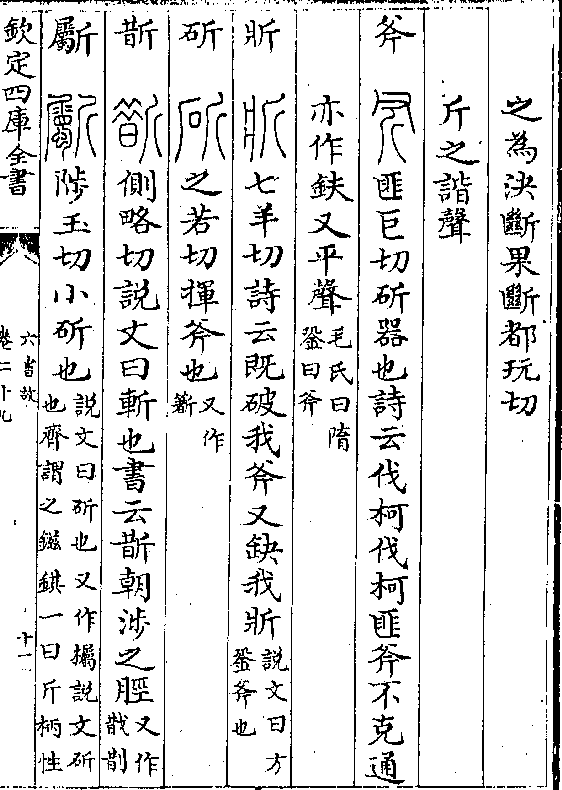 之為決斷果斷都玩切
斤之諧聲
斧 匪巨切斫器也詩云伐柯伐柯匪斧不克通
亦作鈇又平聲毛氏曰隋銎曰斧
斨 七羊切詩云既破我斧又缺我斨說文曰方銎斧也
斫 之若切揮斧也又作𣃈
斮 側略切說文曰斬也書云斮朝涉之脛又作㪿
斸 陟玉切小斫也說文曰斫也又作欘說文斫也齊謂之鎡錤一曰斤柄性
欽定四庫全書
六書故
卷二十九
十一